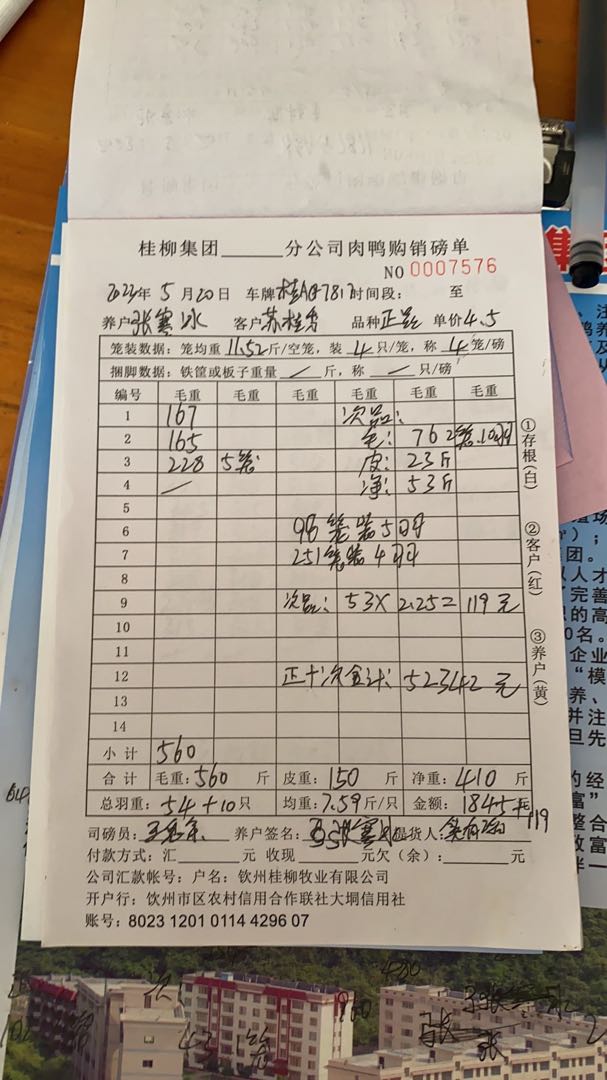 桂柳集团______分公司肉鸭购销磅单
NO 0007576
2023年 5月20日 车牌 时间段: 至
养户 张寒冰 客户 品种 正品 单价 4.5
笼装数据: 笼均重 11.52 斤/空笼, 装 4 只/笼, 称 4 笼/磅
捆脚数据: 铁筐或板子重量 / 斤, 称 / 只/磅
编号 毛重 毛重 毛重 毛重 毛重 毛重
1 167 次品:
2 165 毛: 76 2笼.10羽
3 228 5笼 皮: 23斤
4 / 净: 53斤
5
6 96笼装5羽
7 251笼装4羽
8
9 次品: 53X2.25= 119元
10
11
12 正十次合计: 52342元
13
14
小计 560
合计 毛重: 560 斤 皮重: 150 斤 净重: 410 斤
总羽重: 54+10只 均重: 7.59斤/只 金额: 1845元
119
司磅员: 养户签名: 张寒冰 提货人:
付款方式: 汇______元 收现______元欠(余): ______元
公司汇款帐号: 户名: 钦州桂柳牧业有限公司
开户行: 钦州市区农村信用合作联社大垌信用社
账号: 8023 1201 0114 4296 07
①存根(白)
②客户(红)
③养户(黄)